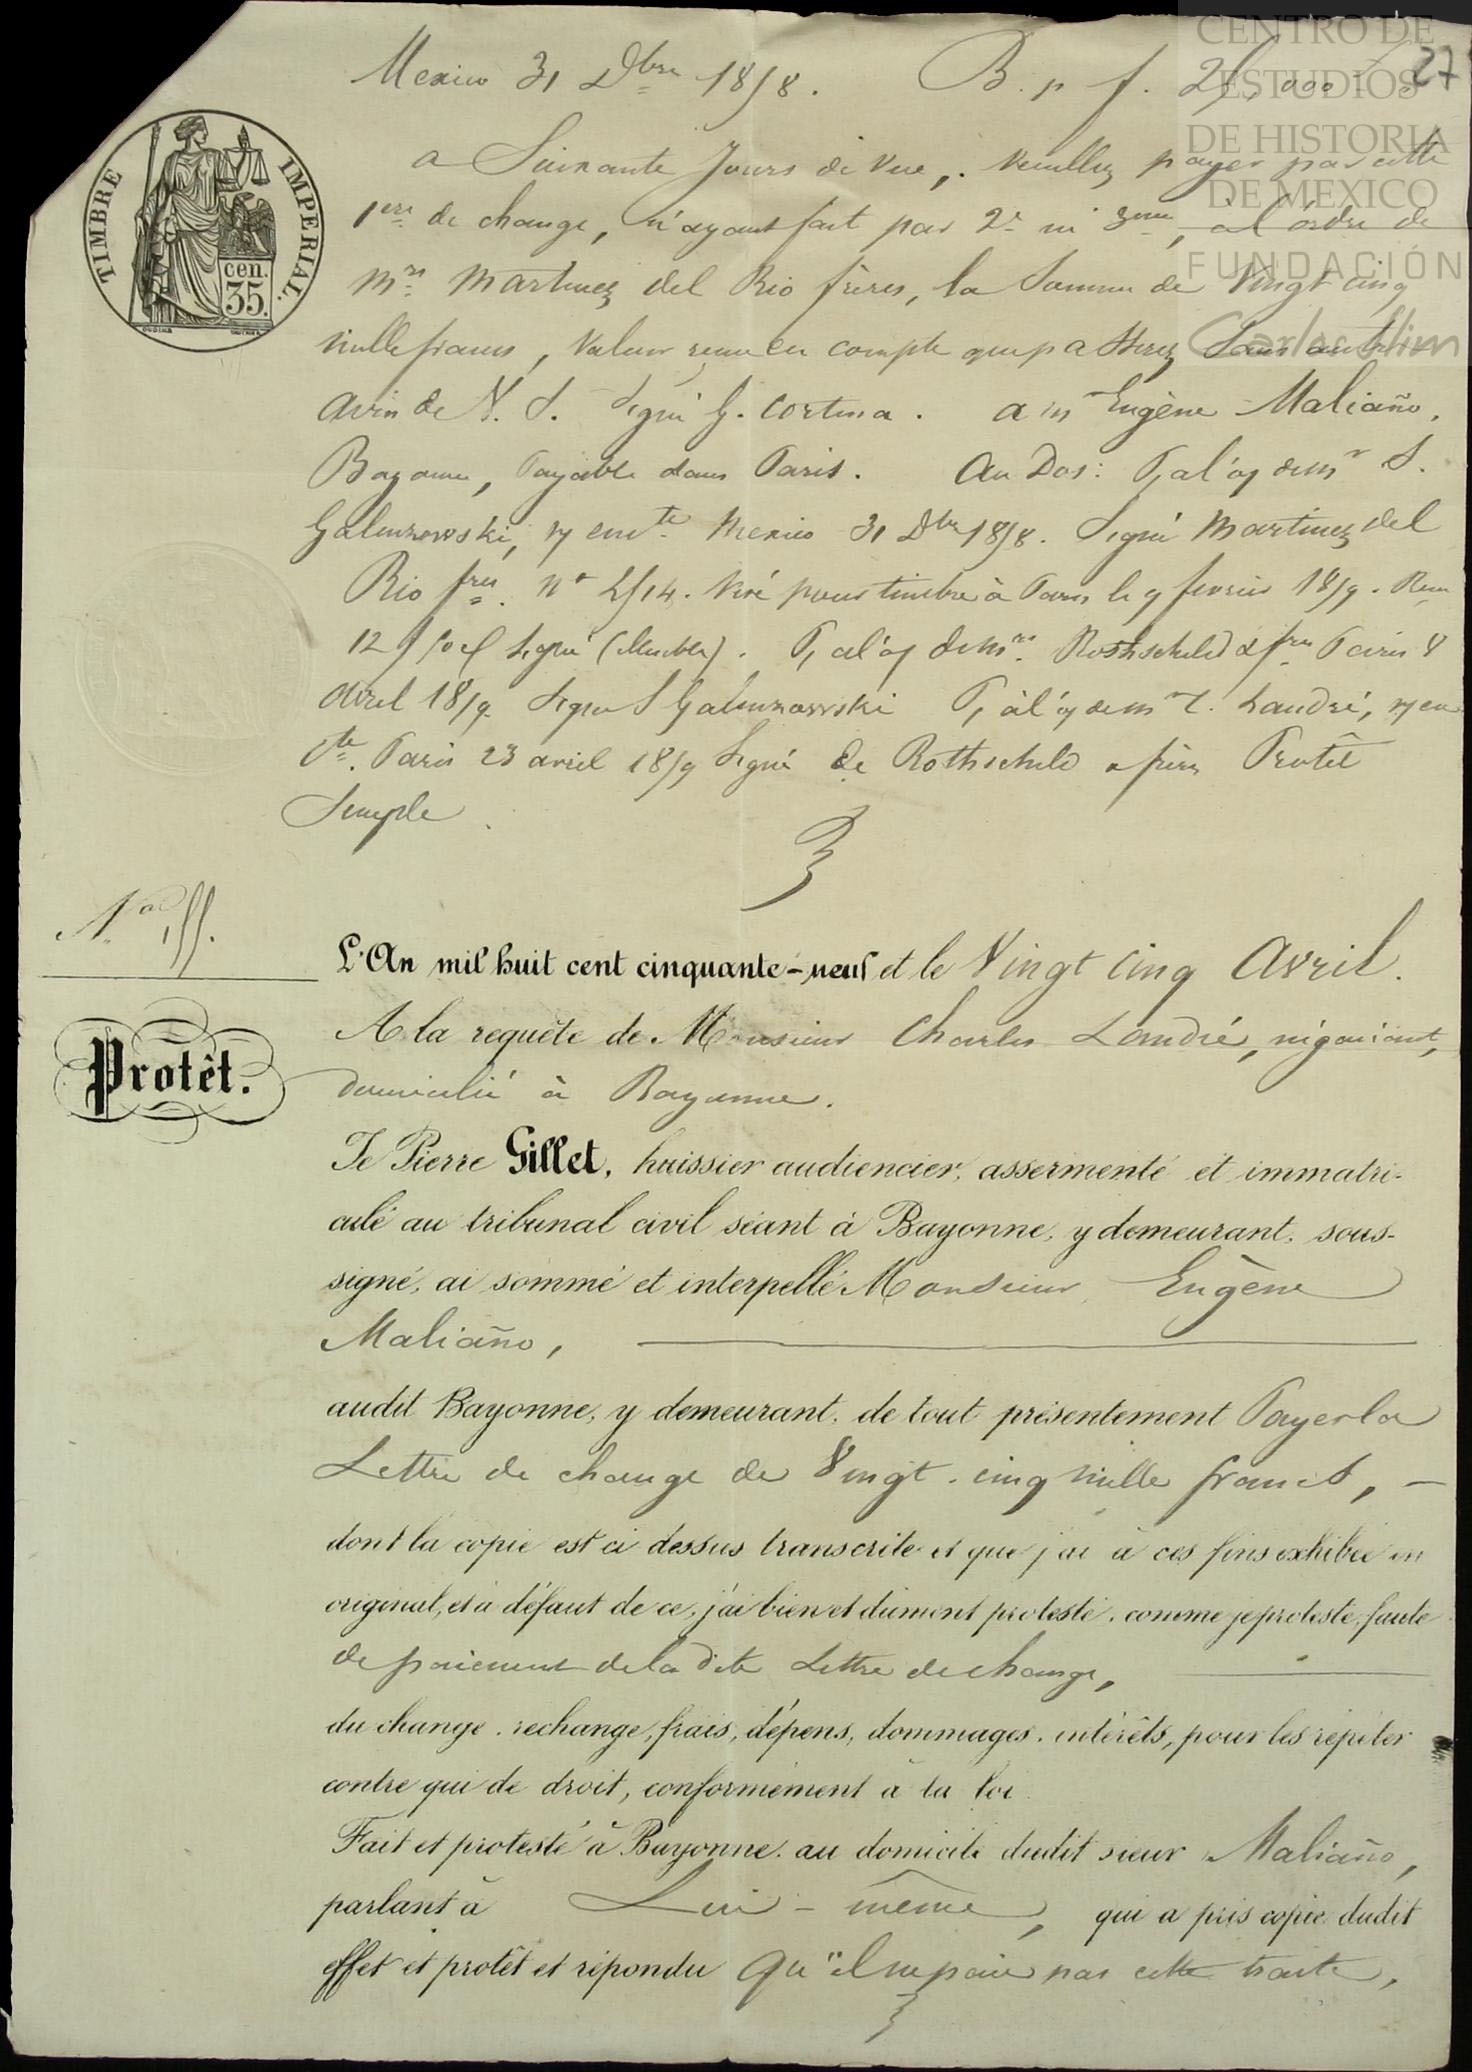 CENTRO DE
ESTUDIOS
DE HISTORIA
DE MEXICO
FUNDACIÓN
Carlos Slim
27
Mexico 31 Dbre 1858. B. p f. 25,000
TIMBRE IMPERIAL.
cen.
35.
a Soixante Jours de Vue, veuillez payer par cette
1ere de change, n'ayant fait par 2e ni 3eme, à l'ordre de
Mrs Martinez del Rio frères, la Somme de Vingt cinq
mille francs, Valeur reçue en compte que passerez Sans autre
avis de V. S. Signé G. Cortina. a Mr Eugène Maliaño,
Bayonne, Payable dans Paris. Au Dos: P, a l'o/ de Mr S.
Galuzowski, v/ en cte Mexico 31 Dbre 1858. Signé Martinez del
Rio fres. No 2514. Visé pour timbre à Paris le 9 fevrier 1859. Reçu
12 f 50 c/ Signé. P, a l'o/ de Mrs Rothschild & fres Paris 8
avril 1859. Signé S Galuzowski P, à l'o/ de Mr C. Landré, v/ en
Cte. Paris 23 avril 1859 Signé de Rothschild frères Protêt
Simple.
No 155.
Protêt.
L'An mil huit cent cinquante-neuf et le Vingt Cinq Avril.
A la requête de Monsieur Charles Landré, négociant,
domicilié à Bayonne.
Je Pierre Gillet, huissier audiencier, assermenté et immatri-
culé au tribunal civil séant à Bayonne, y demeurant, sous-
signé, ai sommé et interpellé Monsieur Eugène
Maliaño,
audit Bayonne, y demeurant, de tout présentement Payer la
Lettre de change de Vingt-cinq mille francs, —
dont la copie est ci dessus transcrite et que j'ai à ces fins exhibée en
original, et à défaut de ce, j'ai bien et dûment protesté, comme je proteste, faute
de paiement de la dite Lettre de change,
du change, rechange, frais, dépens, dommages, intérêts, pour les répéter
contre qui de droit, conformément à la loi
Fait et protesté à Bayonne, au domicile dudit sieur Maliaño,
parlant à Lui-même, qui a pris copie dudit
effet et protêt et répondu Qu'il ne paie pas cette traite,